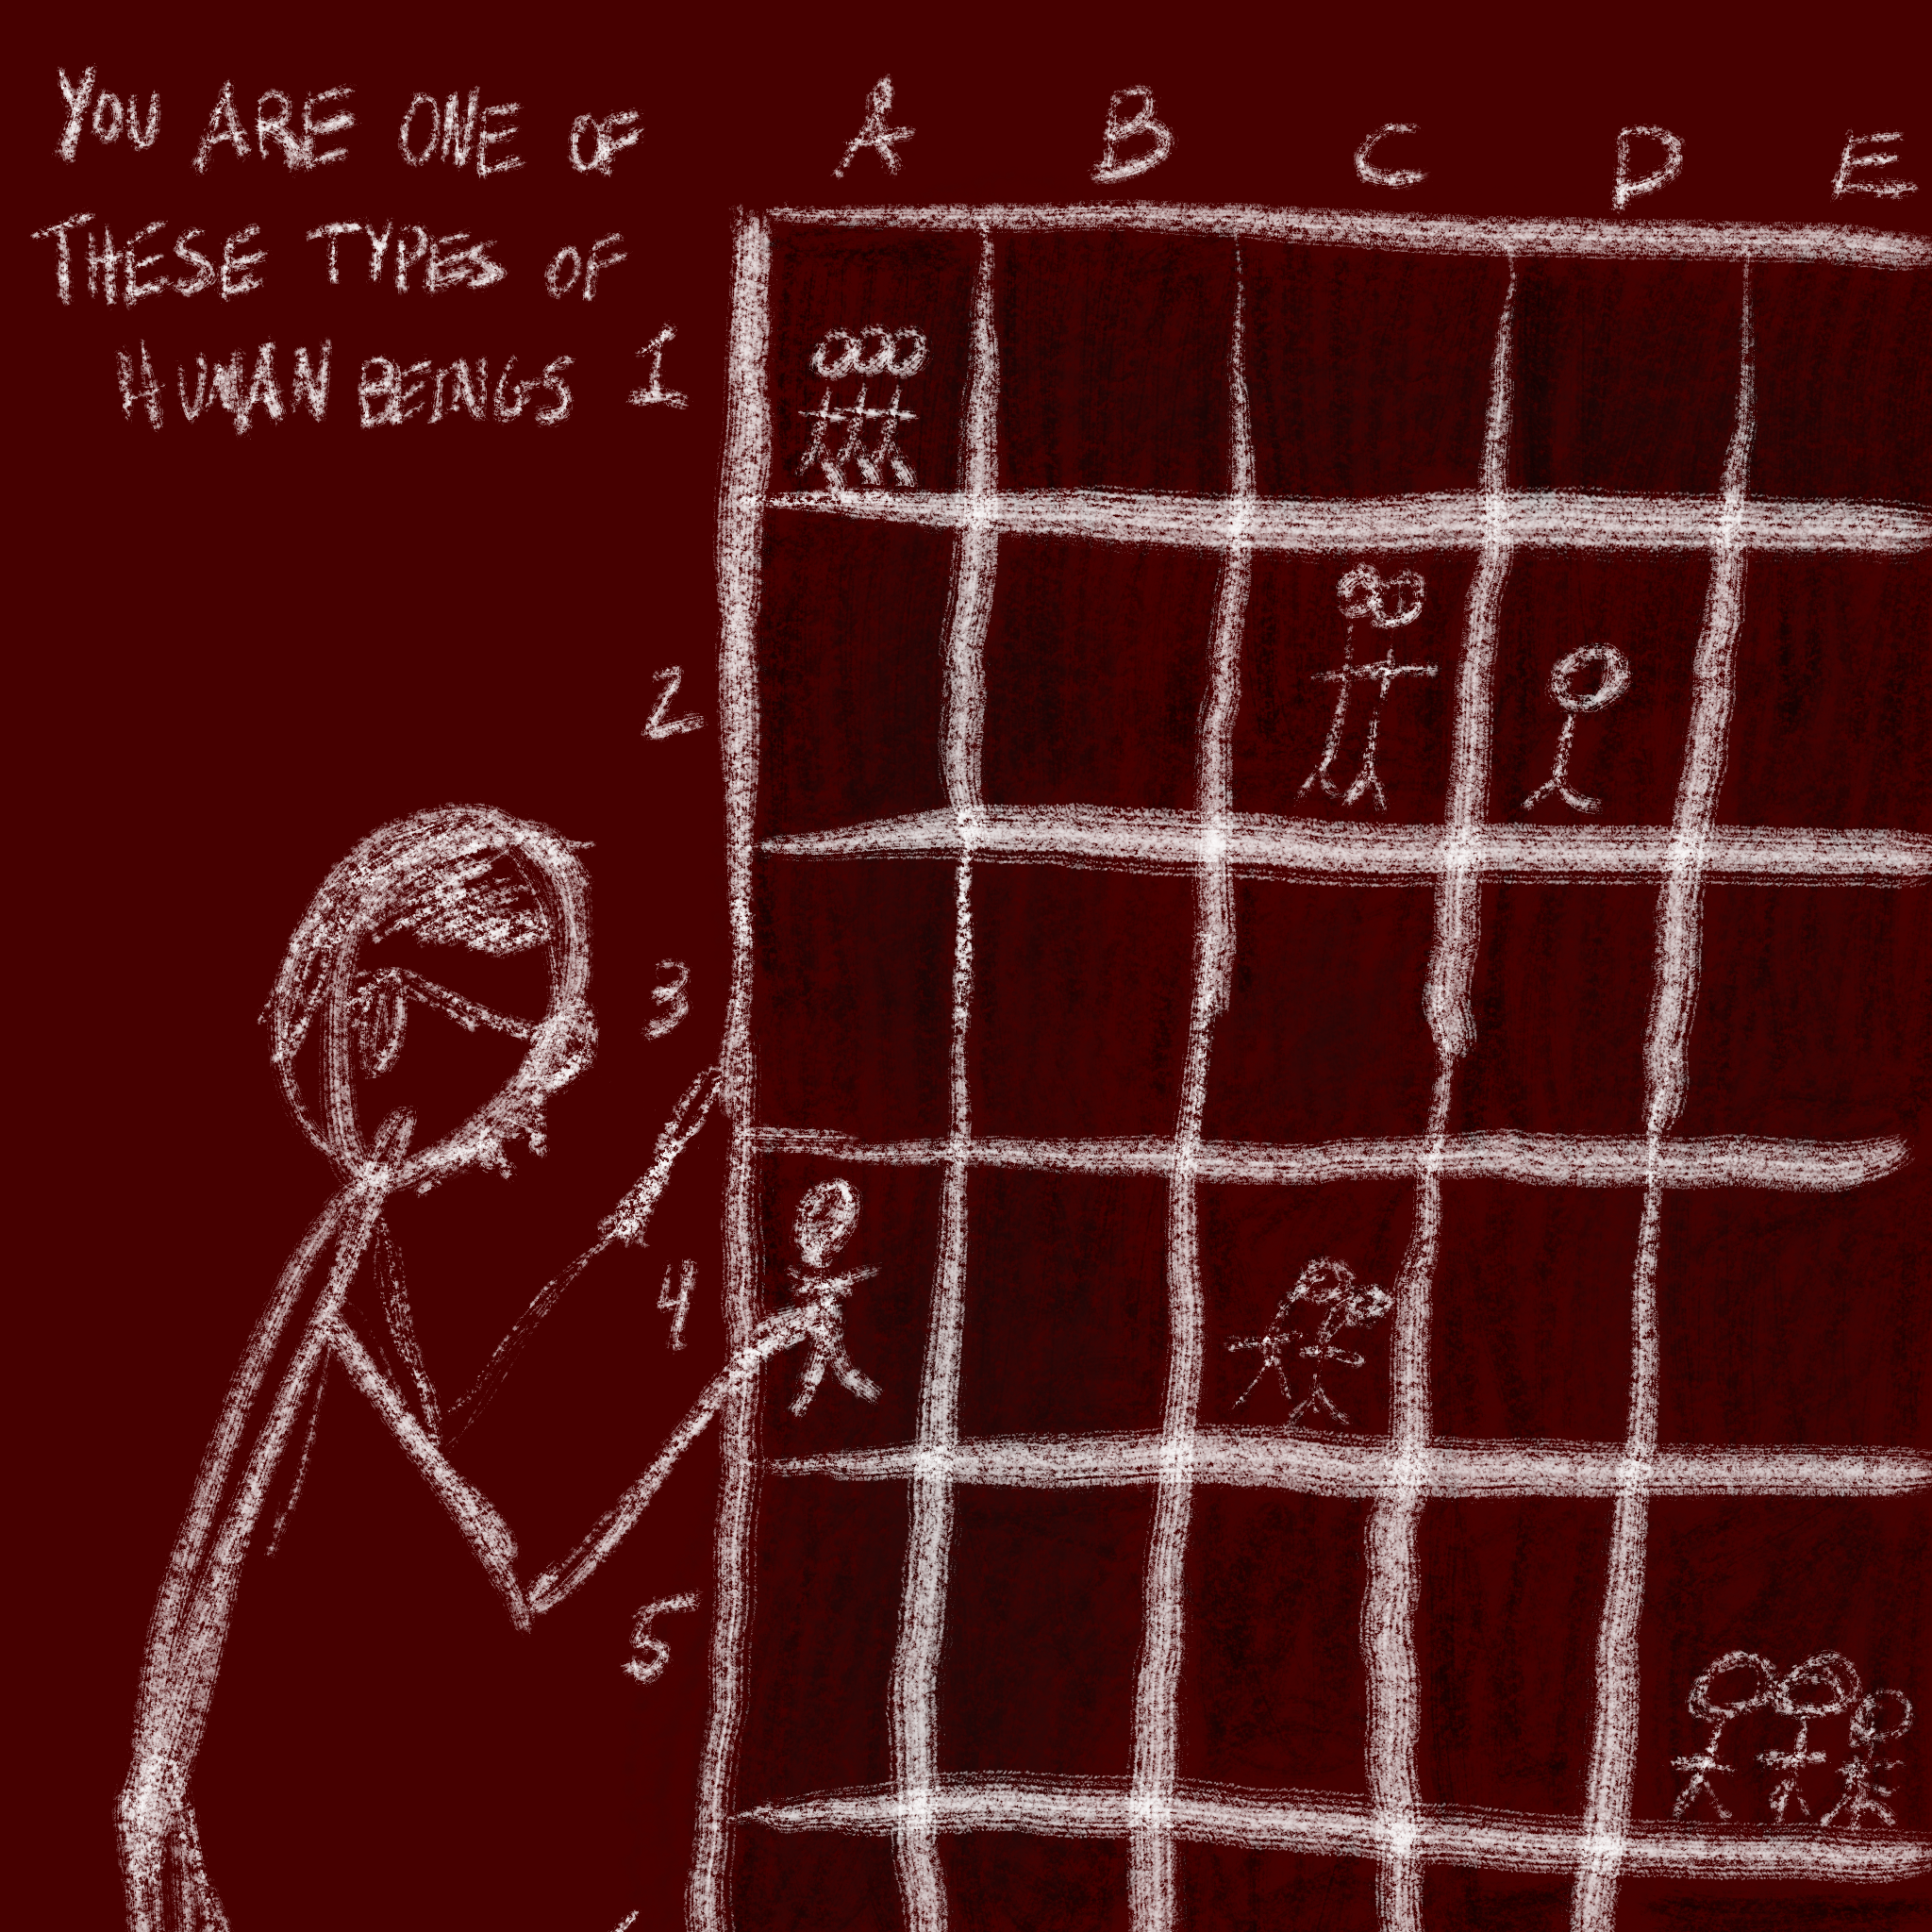 YOU ARE ONE OF
THESE TYPES OF
HUMAN BEINGS
A B C D E
1
2
3
4
5